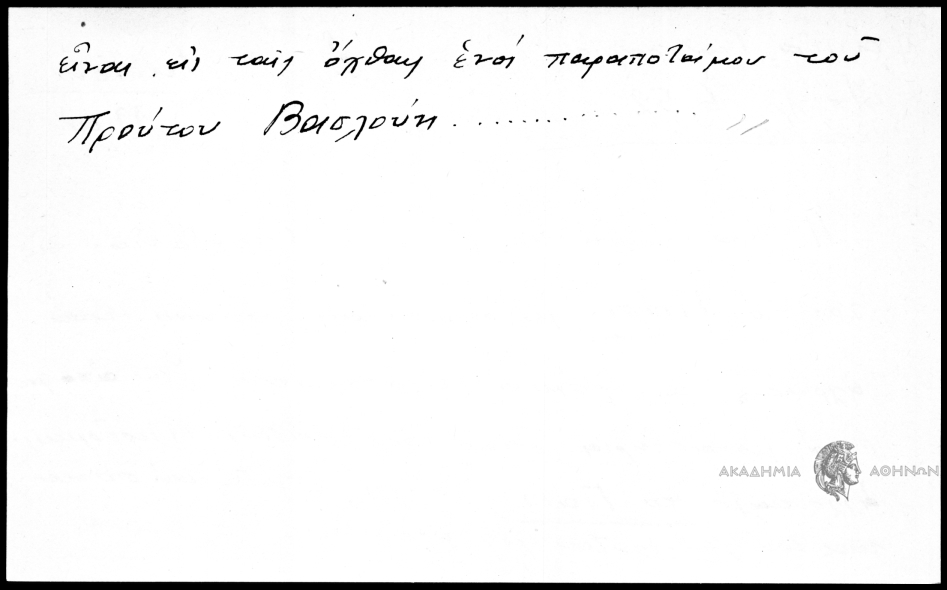 εἶναι εἰς ταῖς ὄχθαις ἑνός παραποτάμου τοῦ
Προύτου Βασλούη .................. "
ΑΚΑΔΗΜΙΑ ΑΘΗΝΩΝ